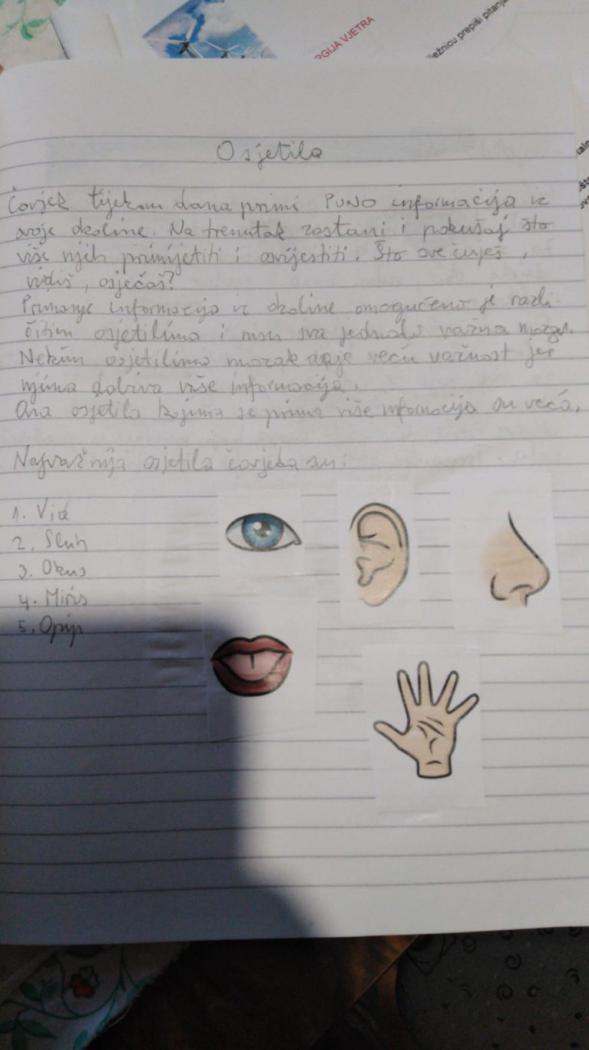 RGIJA VJETRA
ježnicu prepiši pitanj
Osjetila
Čovjek tijekom dana primi PUNO informacija iz
svoje okoline. Na trenutak zastani i pokušaj što
više njih primijetiti i osvijestiti. Što sve čuješ,
vidiš, osjećaš?
Primanje informacija iz okoline omogućeno je razli-
čitim osjetilima i nisu sva jednako važna mozgu.
Nekim osjetilima mozak daje veću važnost jer
njima dobiva više informacija.
Ona osjetila kojima se prima više informacija su veća.
Najvažnija osjetila čovjeka su:
1. Vid
2. Sluh
3. Okus
4. Miris
5. Opip